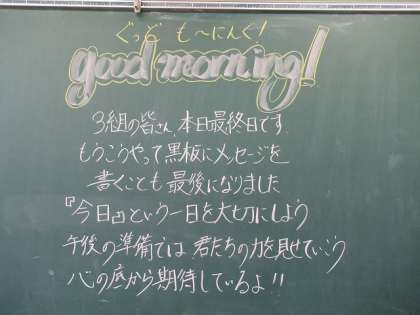 ぐっど も〜にんぐ!
good morning!
3組の皆さん、本日最終日です
もうこうやって黒板にメッセージを
書くことも最後になりました
『今日』という一日を大切にしよう
午後の準備では君たちの力を見せていこう
心の底から期待しているよ!!